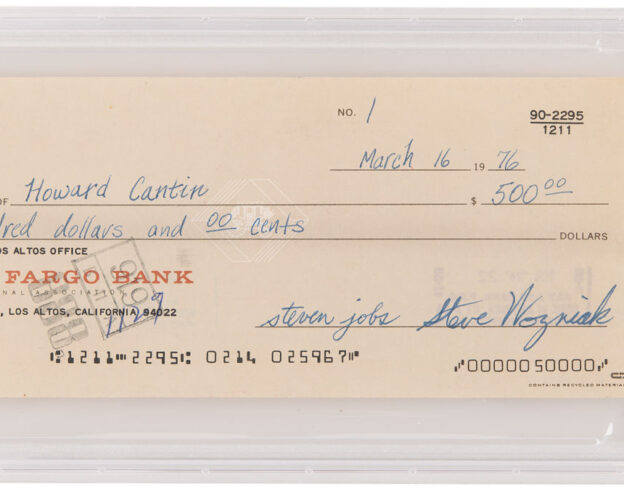 NO. 1
90-2295
1211
March 16 1976
OF Howard Cantin $ 500 00
dred dollars and 00 cents DOLLARS
OS ALTOS OFFICE
FARGO BANK
NAL ASSOCIATION
, LOS ALTOS, CALIFORNIA 94022
1129
steven jobs Steve Wozniak
⑆1211⑉2295⑆ 0214 025967⑈ ⑇0000050000⑇
CONTAINS RECYCLED MATERIAL